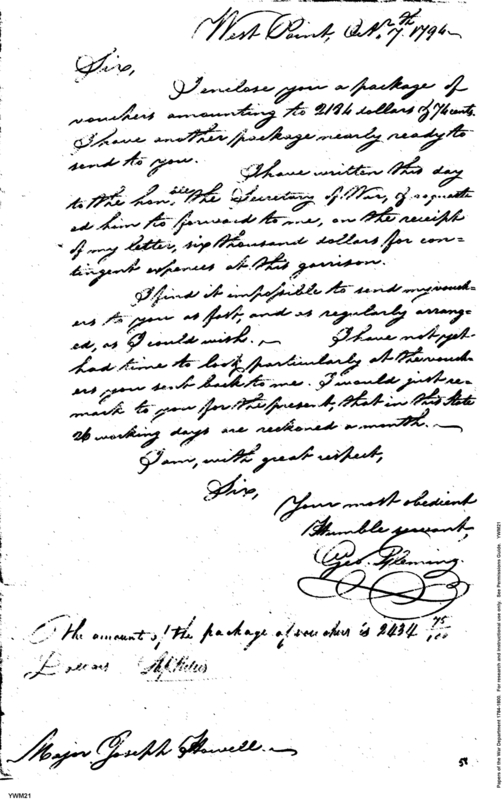 West Point, Octr. 7th 1794
Sir,
I enclose you a package of
vouchers amounting to 2184 dollars & 74 cents.
I have another package nearly ready to
send to you.
I have written this day
to the honble. the Secretary of War, & request-
ed him to forward to me, on the receipt
of my letter, six thousand dollars for con=
tingent expences at this garrison.
I find it impossible to send my vouch-
ers to you as fast, and as regularly arrang-
ed, as I could wish. I have not yet
had time to look particularly at the vouch-
ers you sent back to me. I would just re-
mark to you for the present, that in this State
26 working days are reckoned a month.
I am, with great respect,
Sir,
Your most obedient
Humble servant,
Geo. Fleming.
The amount of the package of vouchers is 2434 75/100
Dollars
Major Joseph Howell
YWM21
Papers of the War Department 1784-1800. For research and instructional use only. See Permissions Guide. YWM21